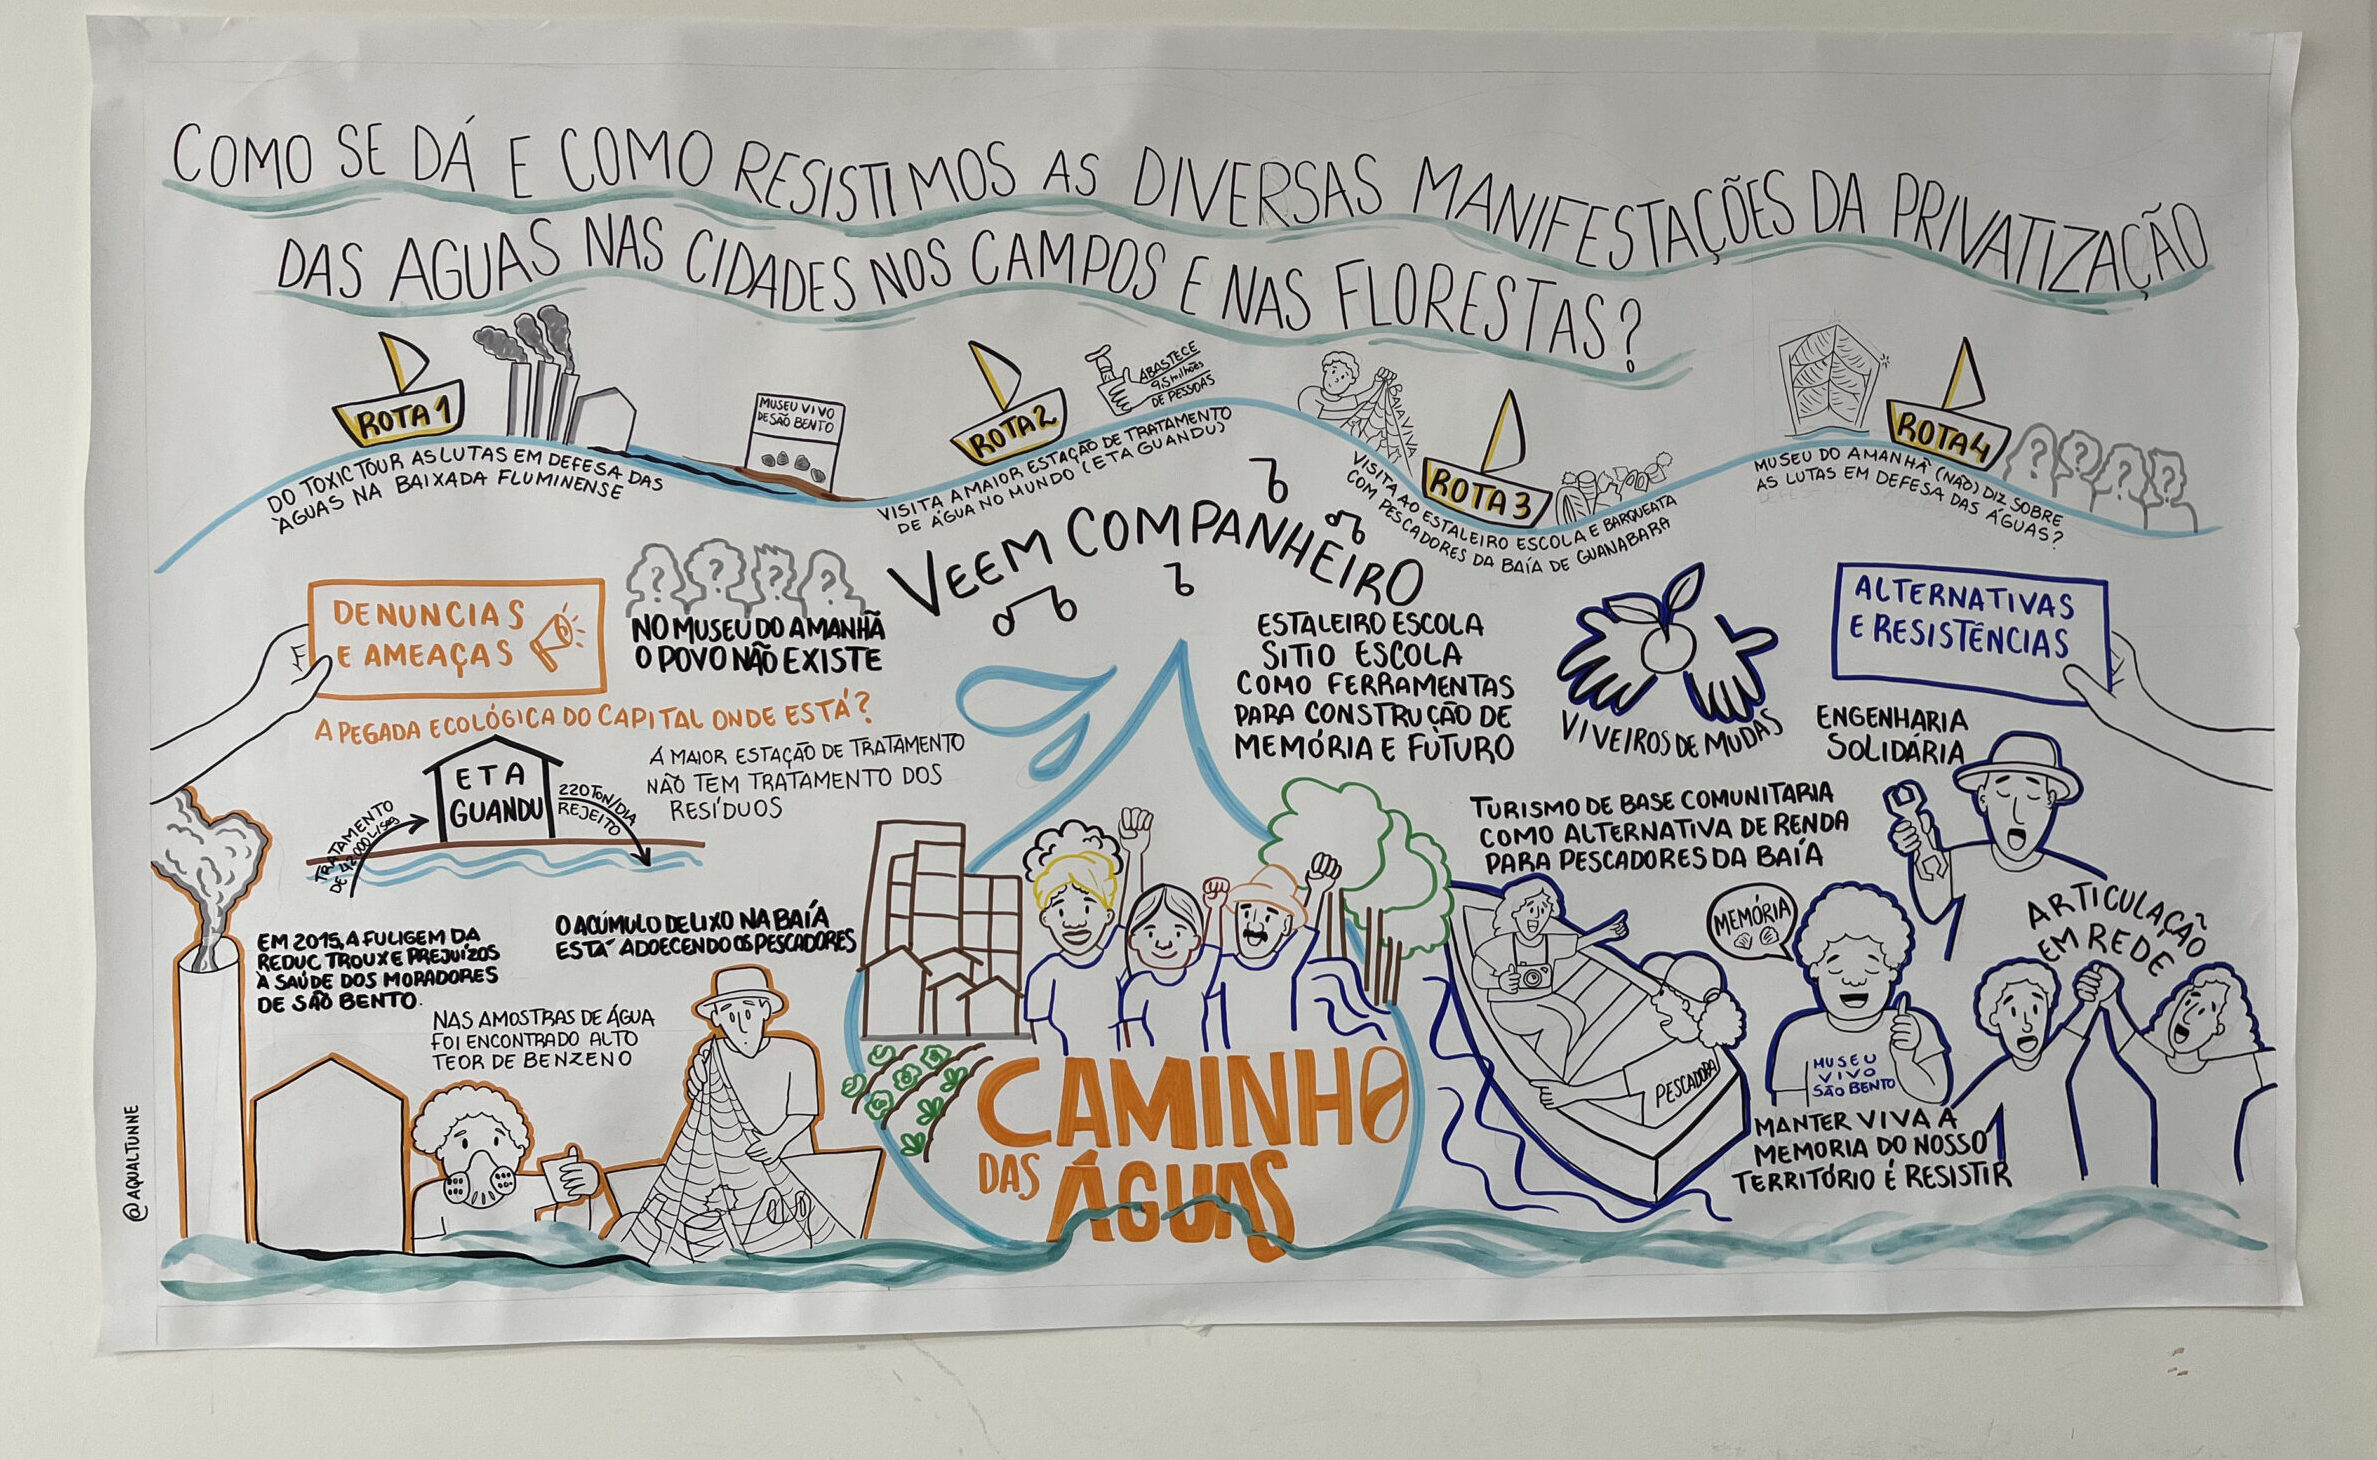 COMO SE DÁ E COMO RESISTIMOS AS DIVERSAS MANIFESTAÇÕES DA PRIVATIZAÇÃO
DAS AGUAS NAS CIDADES NOS CAMPOS E NAS FLORESTAS?
ROTA 1
DO TOXIC TOUR AS LUTAS EM DEFESA DAS
ÁGUAS NA BAIXADA FLUMINENSE
MUSEU VIVO
DE SÃO BENTO
ROTA 2
ABASTECE
9,5 milhões
DE PESSOAS
VISITA A MAIOR ESTAÇÃO DE TRATAMENTO
DE ÁGUA NO MUNDO (ETA GUANDU)
BAIA VIVA
ROTA 3
VISITA AO ESTALEIRO ESCOLA E BARQUEATA
COM PESCADORES DA BAÍA DE GUANABARA
ROTA 4
MUSEU DO AMANHÃ (NÃO) DIZ SOBRE
AS LUTAS EM DEFESA DAS ÁGUAS?
? ? ? ?
VEEM COMPANHEIRO
DENUNCIAS
E AMEAÇAS
? ? ? ?
NO MUSEU DO AMANHÃ
O POVO NÃO EXISTE
A PEGADA ECOLÓGICA DO CAPITAL ONDE ESTÁ?
ETA
GUANDU
TRATAMENTO
DE 42000L/seg
220 TON/DIA
REJEITO
A MAIOR ESTAÇÃO DE TRATAMENTO
NÃO TEM TRATAMENTO DOS
RESÍDUOS
EM 2015, A FULIGEM DA
REDUC TROUXE PREJUÍZOS
À SAÚDE DOS MORADORES
DE SÃO BENTO.
O ACÚMULO DE LIXO NA BAÍA
ESTÁ ADOECENDO OS PESCADORES
NAS AMOSTRAS DE ÁGUA
FOI ENCONTRADO ALTO
TEOR DE BENZENO
@AQUALTUNNE
CAMINHO
DAS ÁGUAS
ESTALEIRO ESCOLA
SITIO ESCOLA
COMO FERRAMENTAS
PARA CONSTRUÇÃO DE
MEMÓRIA E FUTURO
VIVEIROS DE MUDAS
ALTERNATIVAS
E RESISTÊNCIAS
ENGENHARIA
SOLIDÁRIA
TURISMO DE BASE COMUNITARIA
COMO ALTERNATIVA DE RENDA
PARA PESCADORES DA BAÍA
PESCADORA
MEMÓRIA
MUSEU
VIVO
SÃO BENTO
MANTER VIVA A
MEMORIA DO NOSSO
TERRITÓRIO É RESISTIR
ARTICULAÇÃO
EM REDE